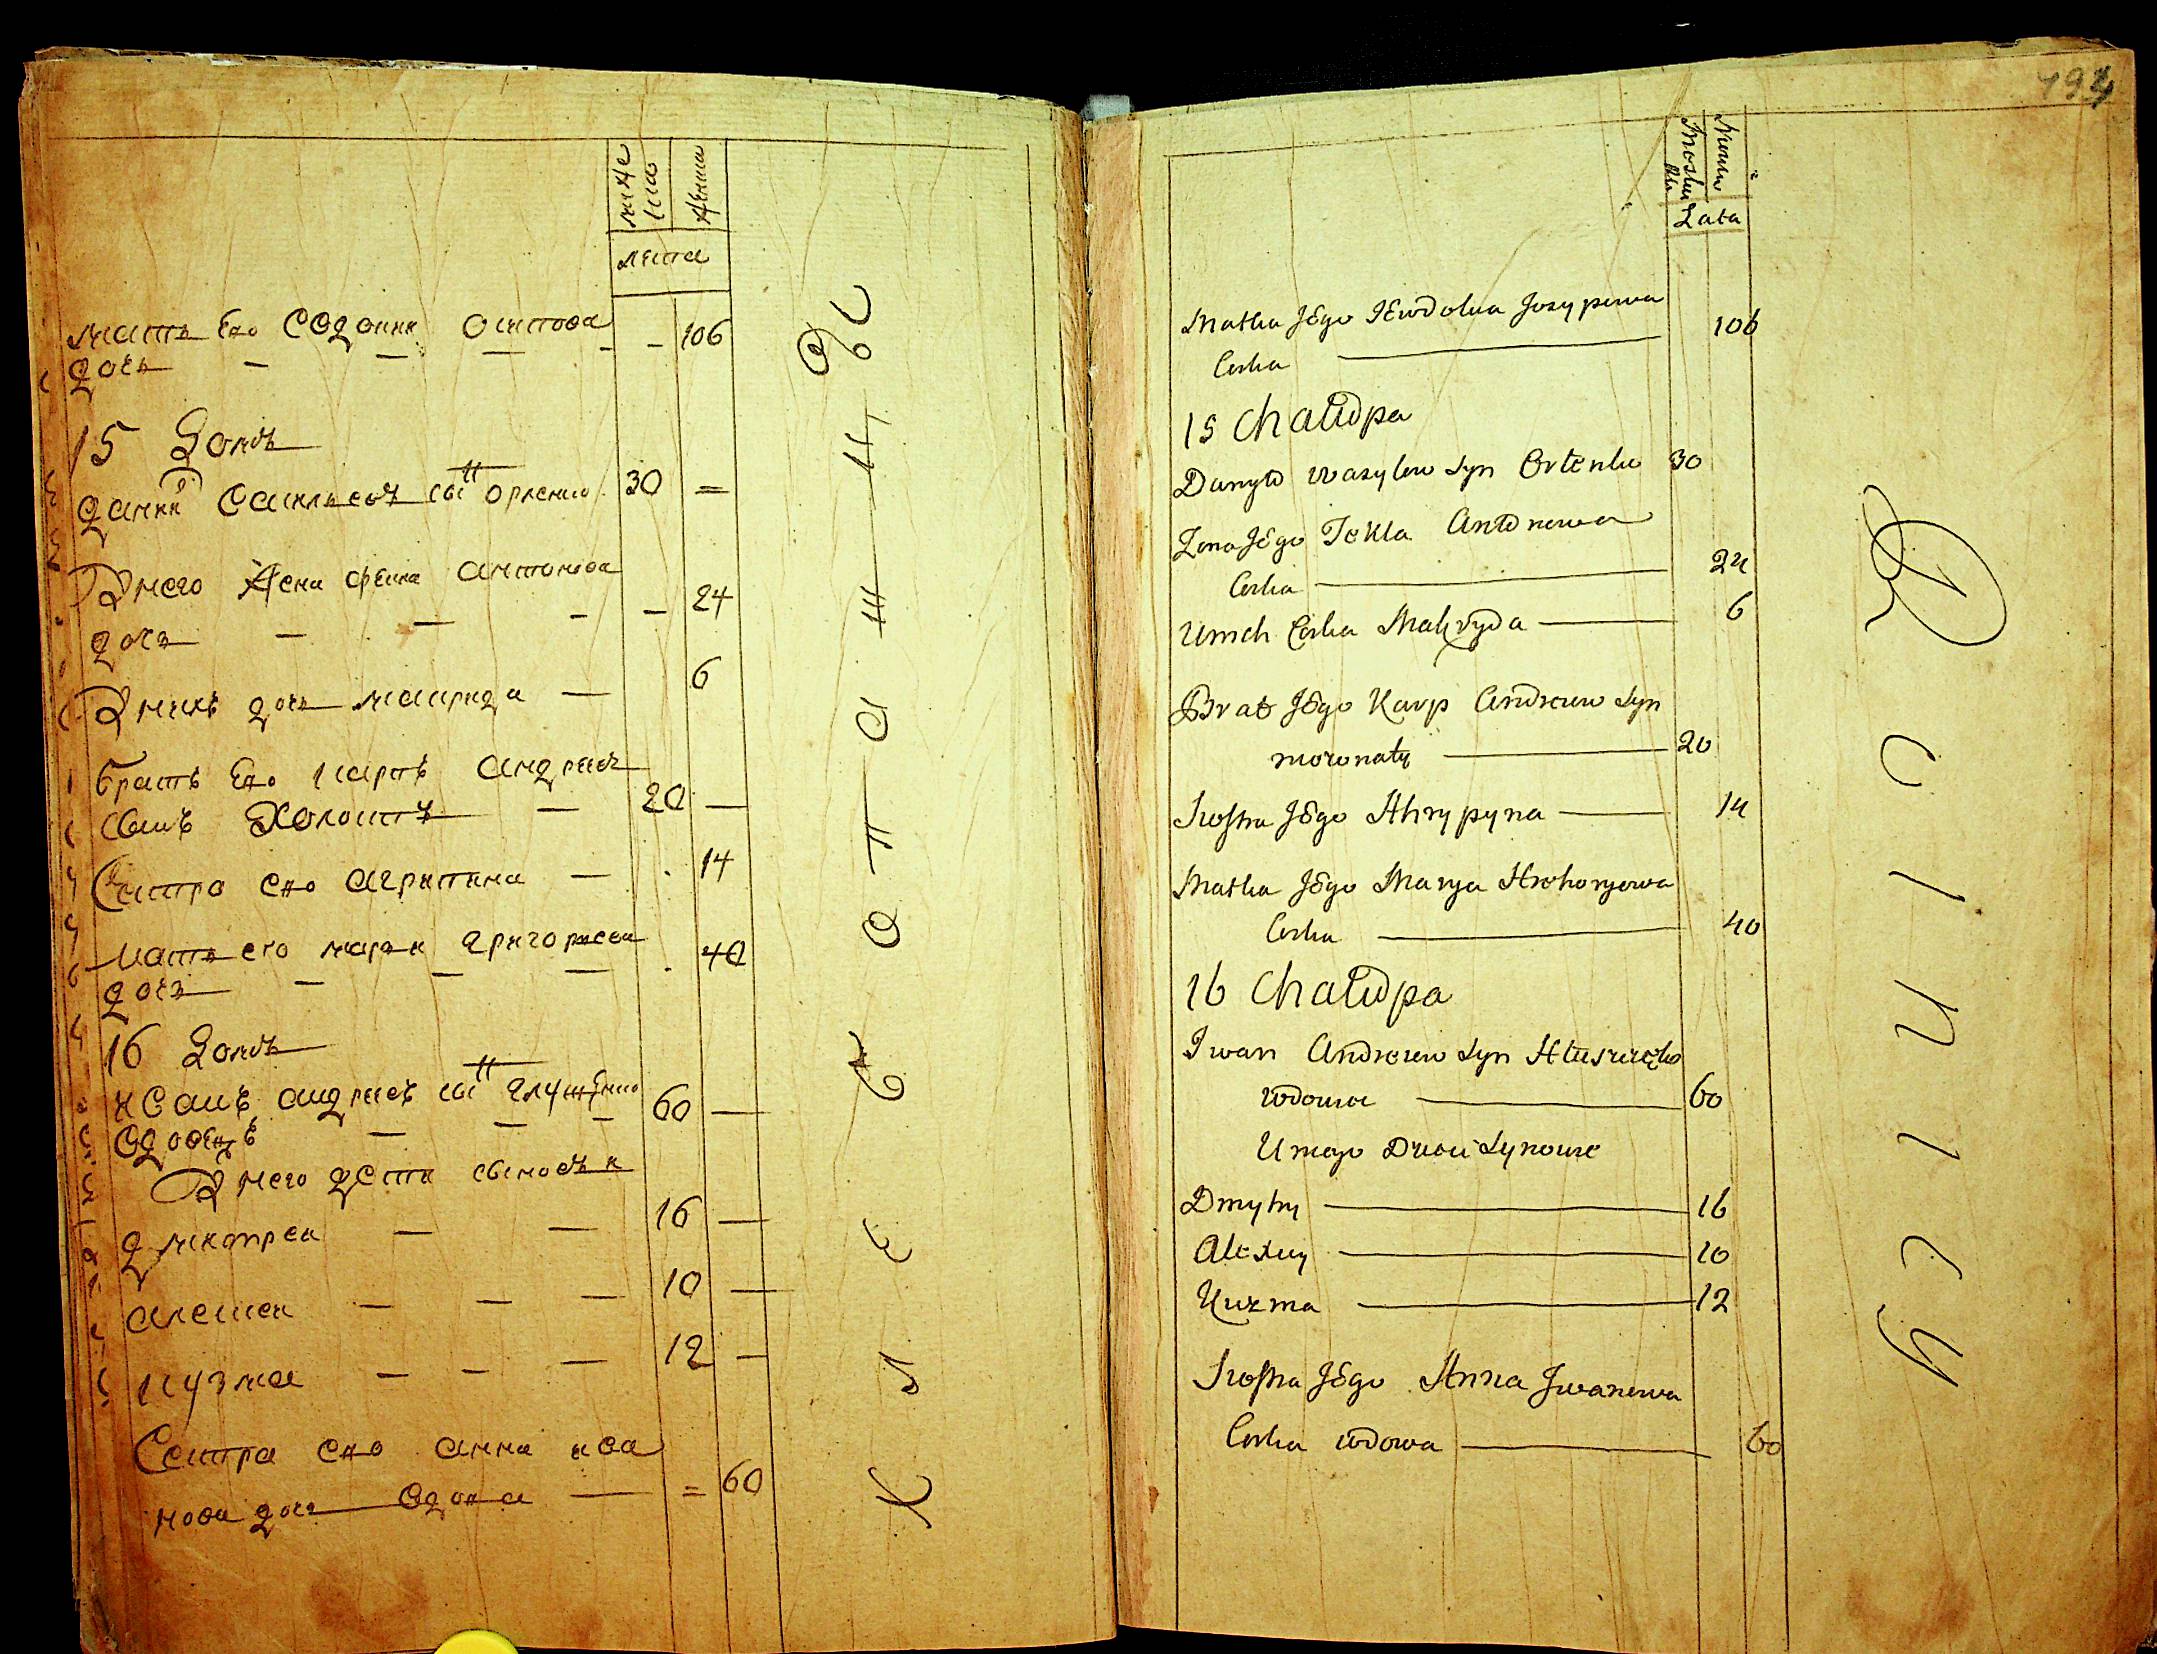 муже
ска
женска
лета
мать его Явдокия осипова
дочь 106
15 Домъ
данило васильевъ сынъ орленко 30
У него жена фекла антонова
дочь 24
У нихъ дочь маврида 6
братъ его карпъ андреевъ
сынъ Холостъ 20
Сестра его агрипина 14
мать его мария григориева
дочь 40
16 Домъ
иванъ андреевъ сынъ глущенко
вдовецъ 60
У него дети сыновья
дмитрей 16
алексей 10
кузма 12
Сестра его анна ива
нова дочь вдова 60
194
Lata
Matka Jego Jewdokia Josypowa
Corka 106
15 Chałupa
Danyło Wasylow Syn Orlenko 30
Zona Jego Tekla Antonowa
Corka 24
U nich Corka Makryda 6
Brat Jego Karp Andreew Syn
niezonaty 20
Siostra Jego Ahrypyna 14
Matka Jego Marya Hrehoryowa
Corka 40
16 Chałupa
Iwan Andreew Syn Hłuszczenko
wdowiec 60
U niego Dwoi Synowie
Dmytry 16
Alexiey 10
Kuzma 12
Siostra Jego Anna Iwanowa
Corka wdowa 60